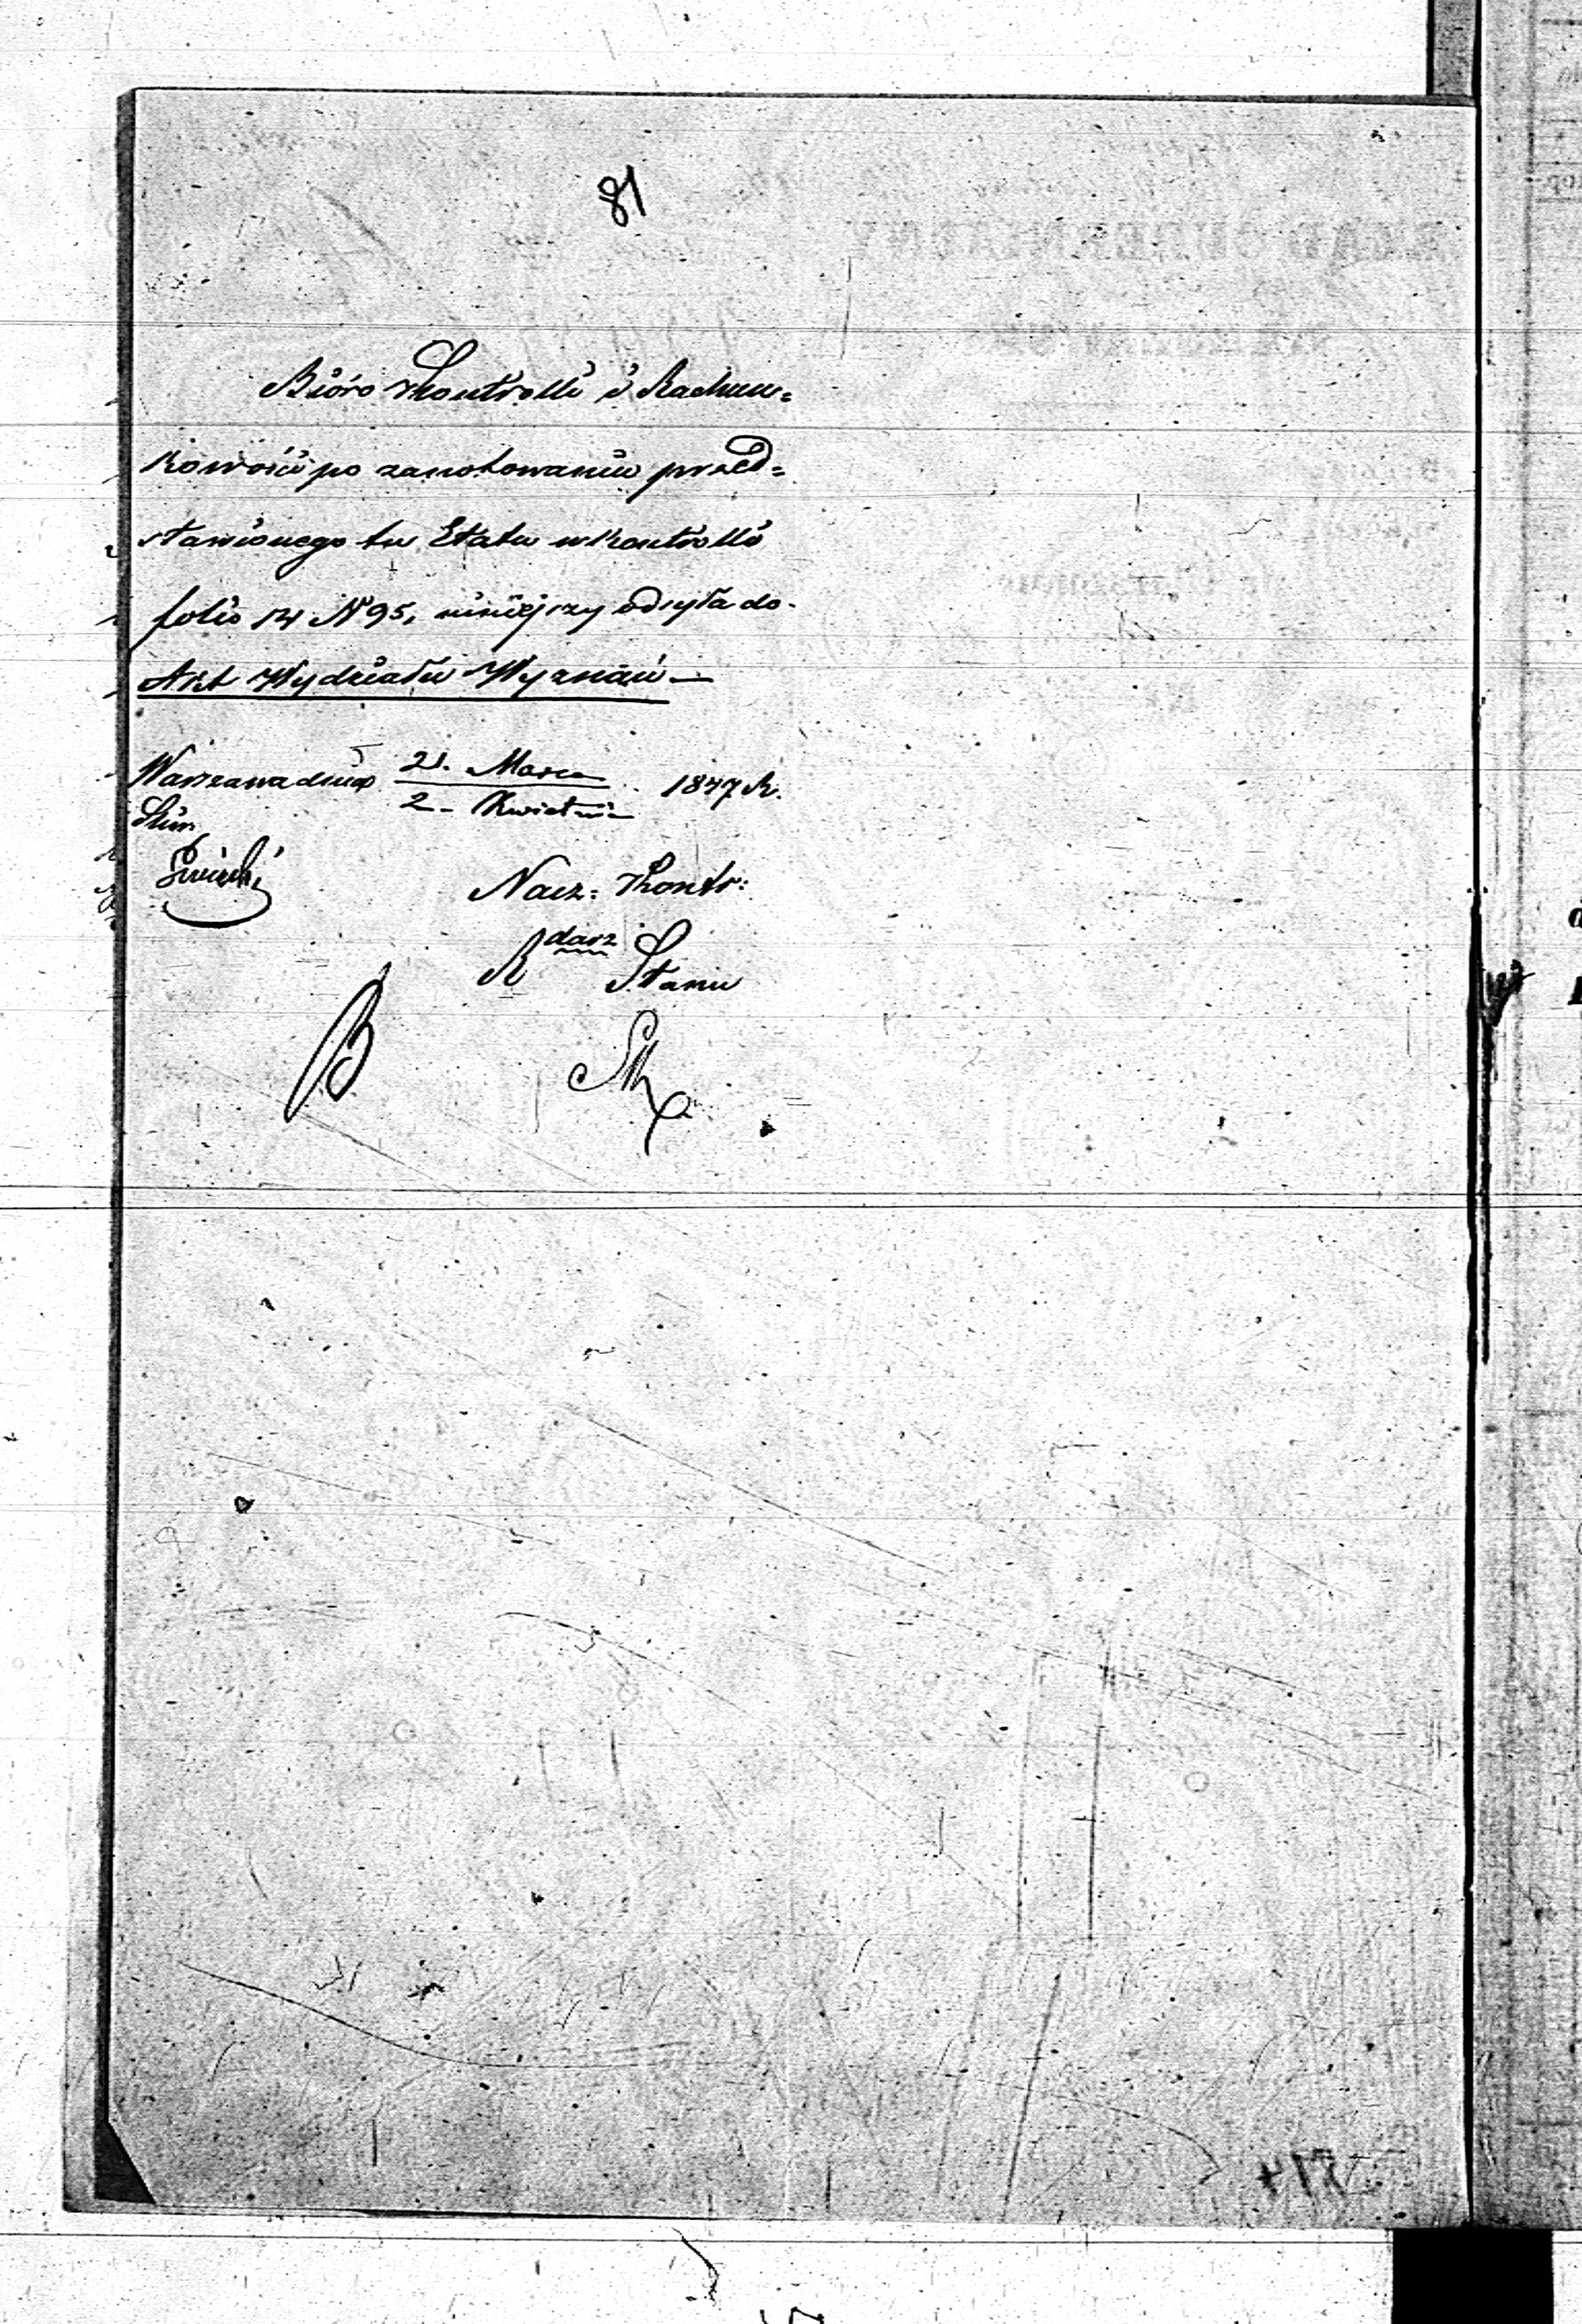 81
Bióro Kontrolli i Rachun=
kowości po zanotowaniu przed=
stawionego tu Etatu w Kontrolli
folio 14 N 95, niniejszy odsyła do
Akt Wydziału Wyznań —
Warszawa dnia 21. Marca / 2 - Kwietnia 1847 R.
Nacz: Kontr:
R darz Stanu
B